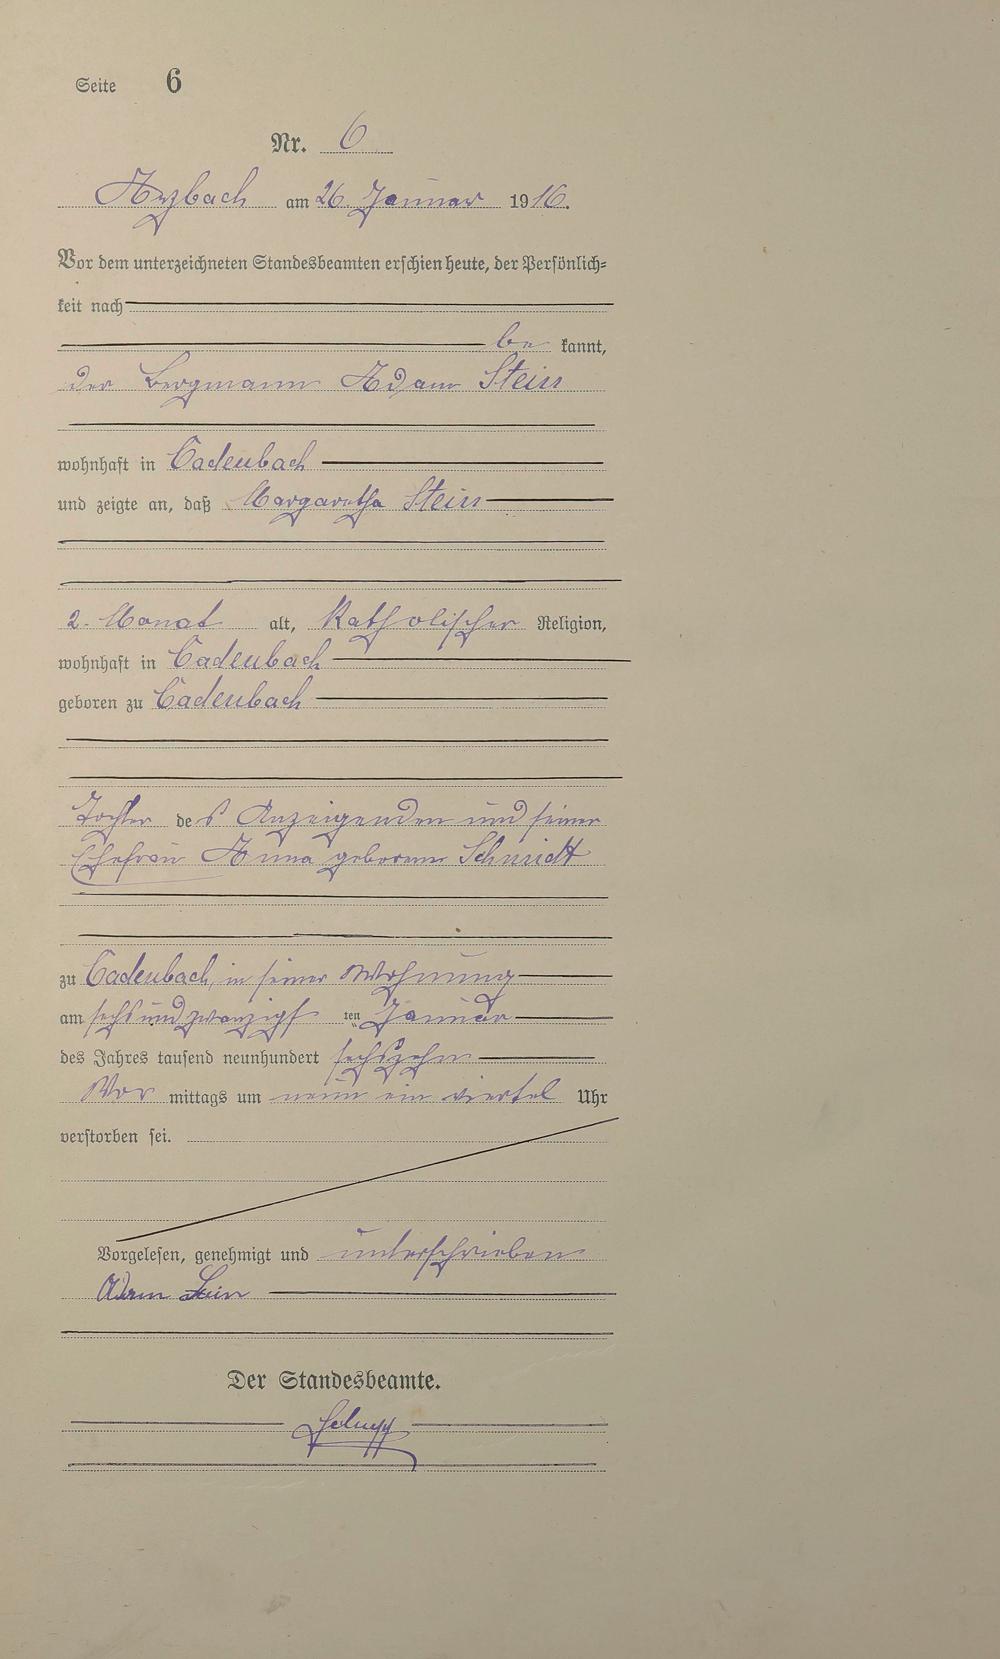 Seite 6
Nr. 6
Arzbach am 26. Januar 1916.
Vor dem unterzeichneten Standesbeamten erschien heute, der Persönlich-
keit nach
be kannt,
der Bergmann Adam Stein
wohnhaft in Cadenbach
und zeigte an, daß Margaretha Stein
2. Monat alt, Katholischer Religion,
wohnhaft in Cadenbach
geboren zu Cadenbach
Tochter des Anzeigenden und seiner
Ehefrau Anna geborener Schmidt
zu Cadenbach, in seiner Wohnung
am sechsundzwanzigs ten Januar
des Jahres tausend neunhundert sechszehn
Vor mittags um neun ein viertel Uhr
verstorben sei.
Vorgelesen, genehmigt und unterschrieben
Adam Stein
Der Standesbeamte.